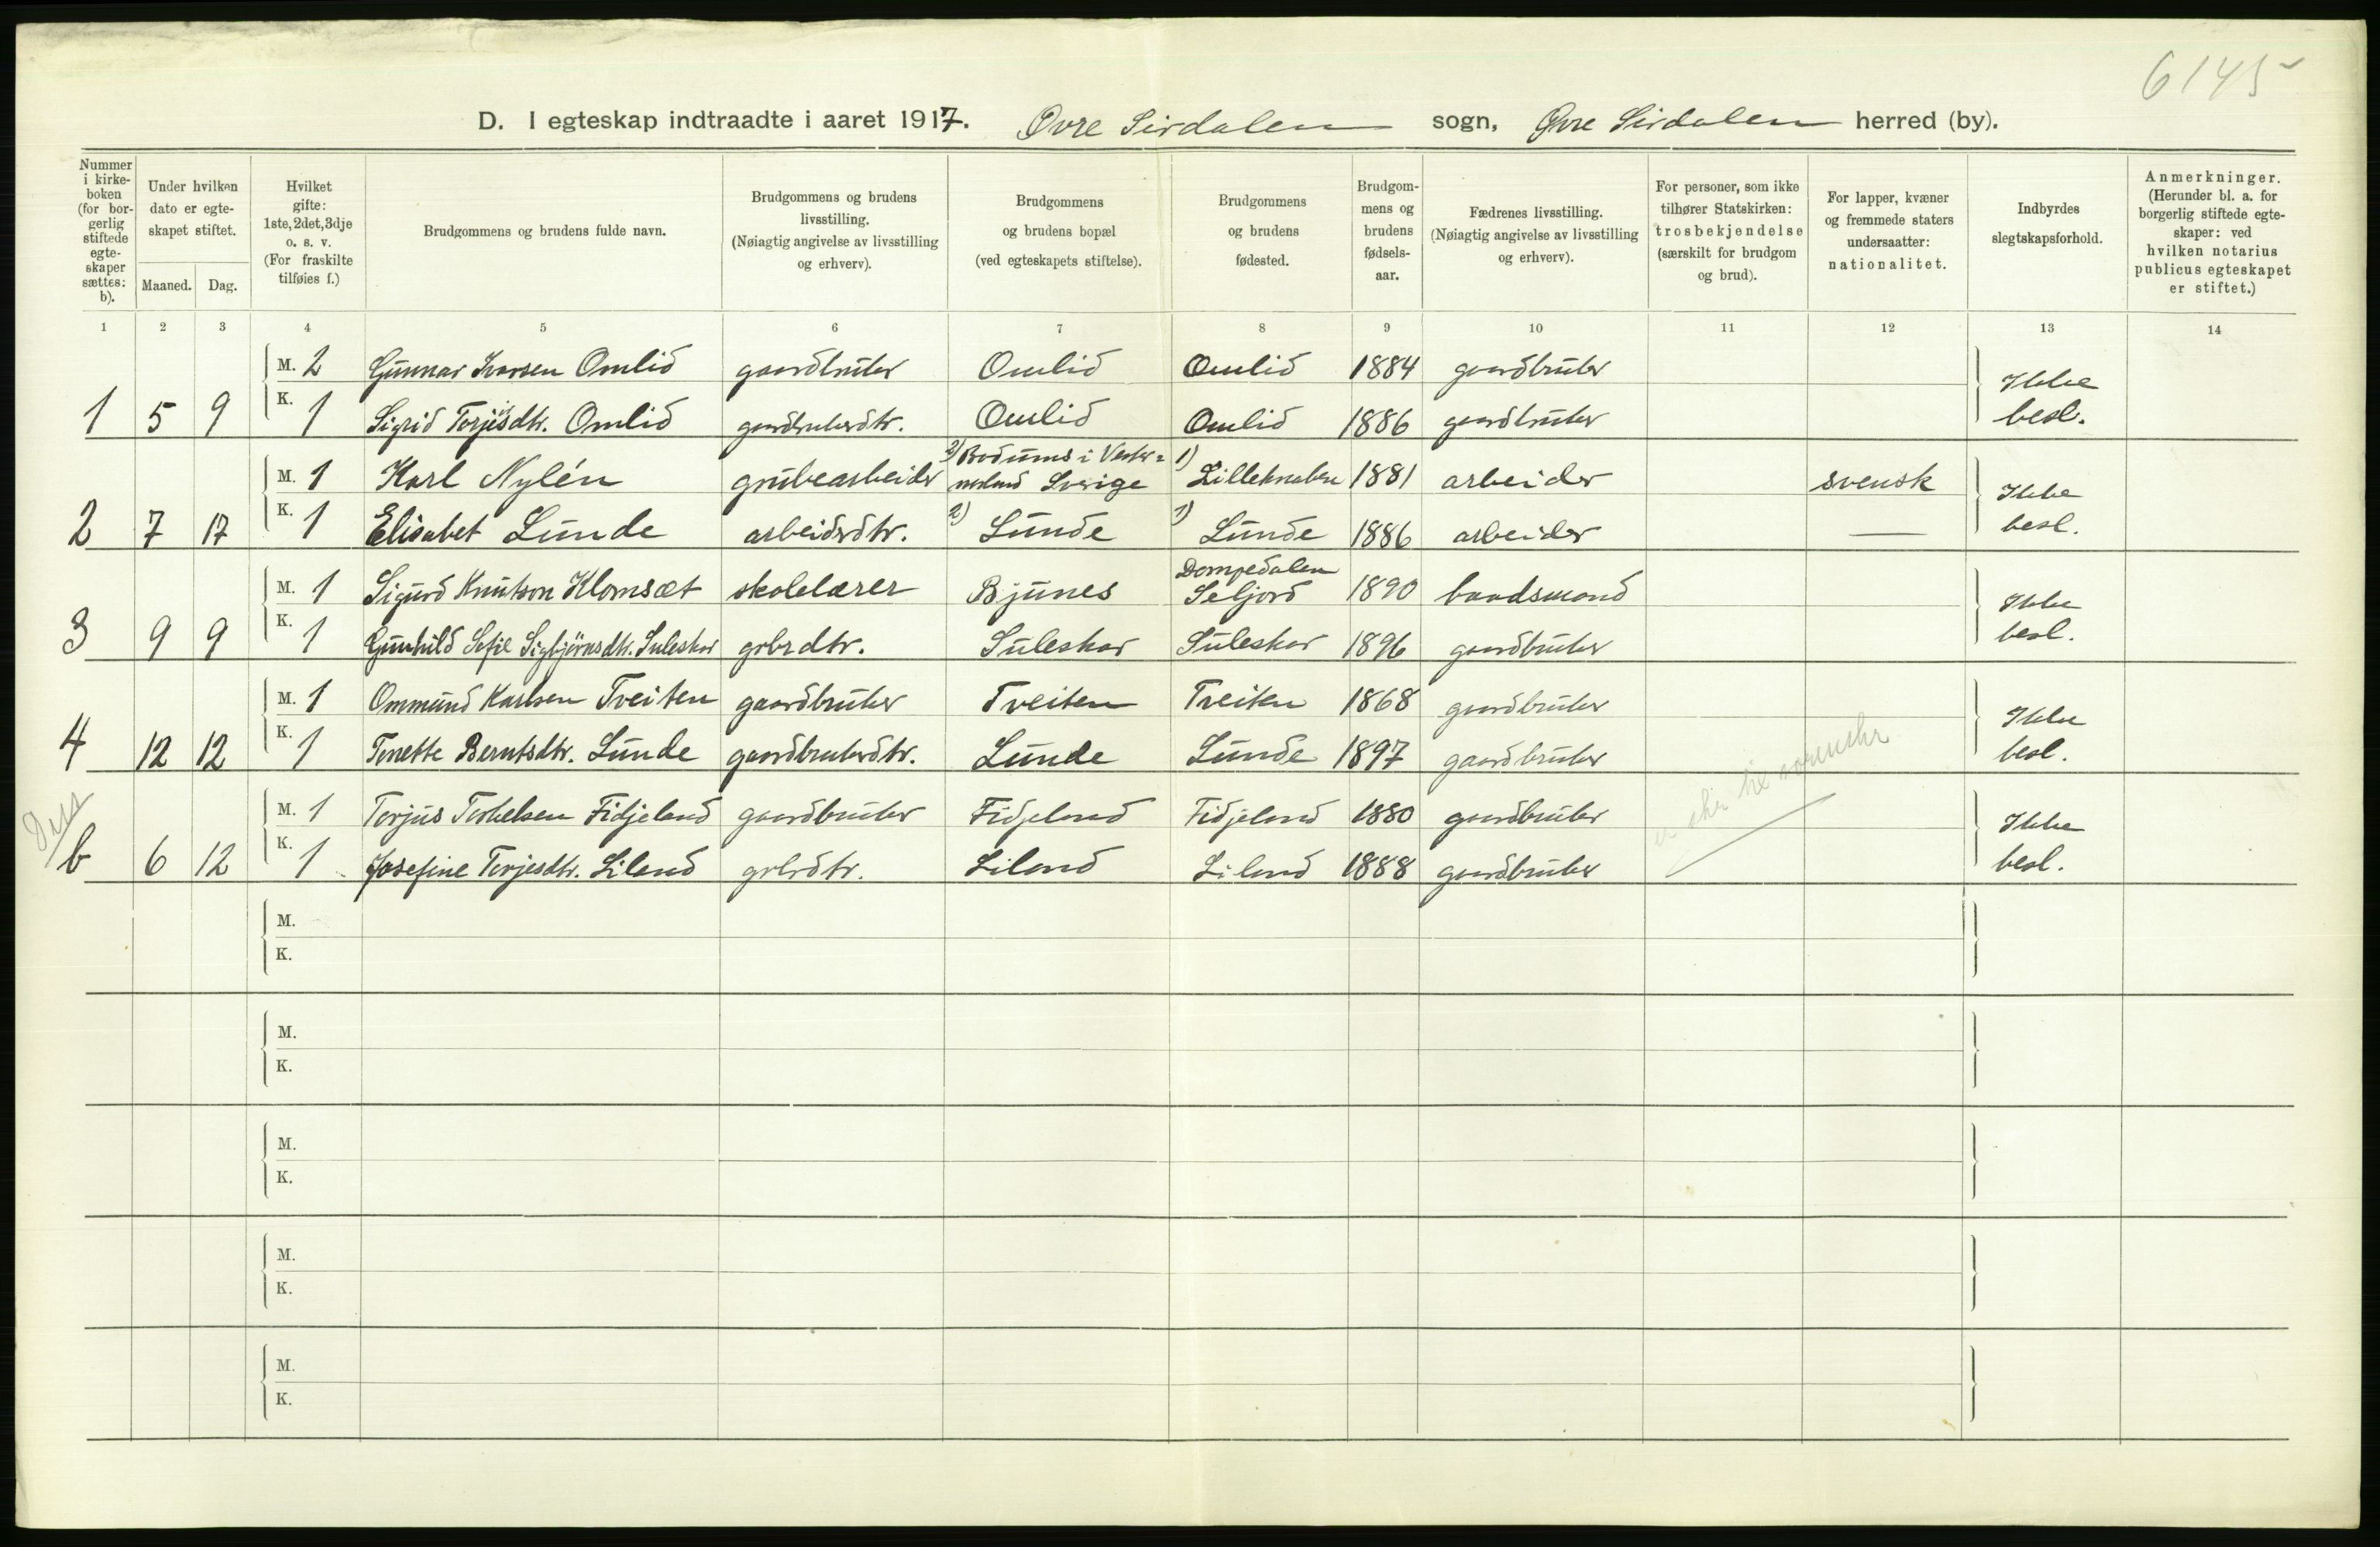 6145
D. I egteskap indtraadte i aaret 1917. Øvre Sirdalen sogn, Øvre Sirdalen herred (by).
Nummer i kirke-boken (for bor-gerlig stiftede egte-skaper sættes: b).
Under hvilken dato er egte-skapet stiftet.
Maaned. Dag.
Hvilket gifte: 1ste, 2det, 3dje o. s. v. (For fraskilte tilføies f.)
Brudgommens og brudens fulde navn.
Brudgommens og brudens livsstilling. (Nøiagtig angivelse av livsstilling og erhverv).
Brudgommens og brudens bopæl (ved egteskapets stiftelse).
Brudgommens og brudens fødested.
Brudgom-mens og brudens fødsels-aar.
Fædrenes livsstilling. (Nøiagtig angivelse av livsstilling og erhverv).
For personer, som ikke tilhører Statskirken: trosbekjendelse (særskilt for brudgom og brud).
For lapper, kvæner og fremmede staters undersaatter: nationalitet.
Indbyrdes slegtskapsforhold.
Anmerkninger. (Herunder bl. a. for borgerlig stiftede egte-skaper: ved hvilken notarius publicus egteskapet er stiftet.)
1 2 3 4 5 6 7 8 9 10 11 12 13 14
M. 2 Gunnar Ivarsen Omlid gaardbruker Omlid Omlid 1884 gaardbruker Ikke
1 5 9 K. 1 Sigrid Torjusdtr. Omlid gaardbrukerdtr. Omlid Omlid 1886 gaardbruker besl.
M. 1 Karl Nylén grubearbeider Sverige 1) 1881 arbeider svensk Ikke
2 7 17 K. 1 Elisabet Lunde arbeiderdtr. 2) Lunde 1) Lunde 1886 arbeider — besl.
M. 1 Sigurd Knutson Klomsæt skolelærer Bjunes Dompedalen Seljord 1890 baadsmand Ikke
3 9 9 K. 1 Gunhild Sofie Sigbjørnsdtr. Suleskar grbrdtr. Suleskar Suleskar 1896 gaardbruker besl.
M. 1 Ommund Karlsen Tveiten gaardbruker Tveiten Tveiten 1868 gaardbruker Ikke
4 12 12 K. 1 Tonette Berntsdtr. Lunde gaardbrukerdtr. Lunde Lunde 1897 gaardbruker besl.
M. 1 Torjus Torkelsen Fidjeland gaardbruker Fidjeland Fidjeland 1880 gaardbruker Ikke
b 6 12 K. 1 Josefine Torjesdtr. Liland grbrdtr. Liland Liland 1888 gaardbruker besl.
M.
K.
M.
K.
M.
K.
M.
K.
M.
K.